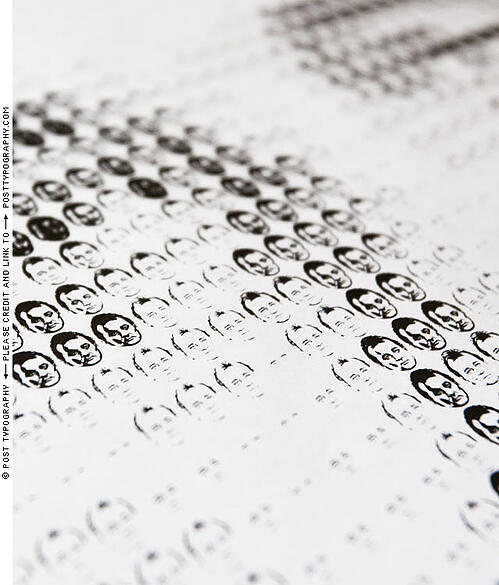 © POST TYPOGRAPHY ← PLEASE CREDIT AND LINK TO → POSTTYPOGRAPHY.COM